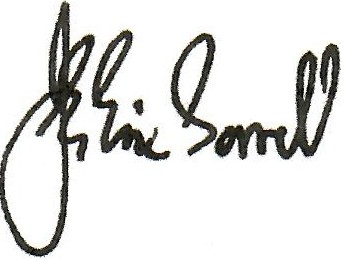 Eric Sorrell